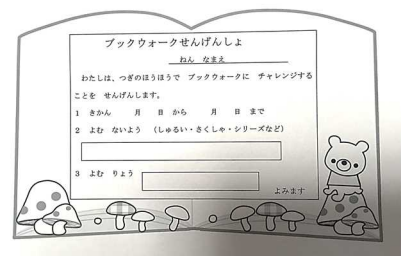 ブックウォークせんげんしょ
ねん なまえ
わたしは、つぎのほうほうで ブックウォークに チャレンジする
ことを せんげんします。
1 きかん 月 日 から 月 日 まで
2 よむ ないよう (しゅるい・さくしゃ・シリーズなど)
3 よむ りょう
よみます